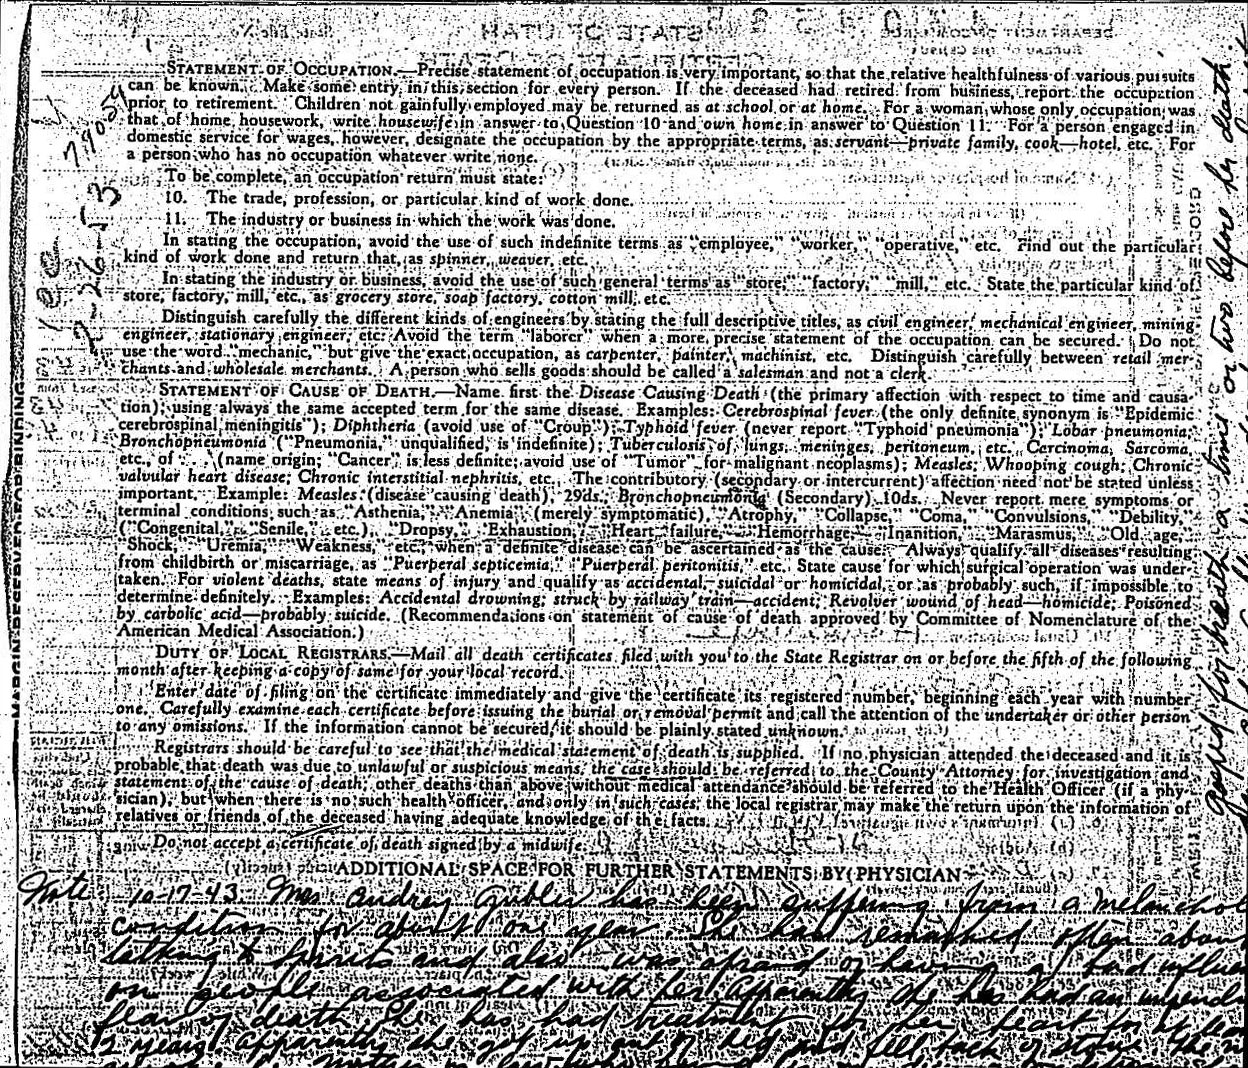 STATE OF UTAH
STATEMENT OF OCCUPATION.—Precise statement of occupation is very important, so that the relative healthfulness of various pursuits
can be known. Make some entry in this section for every person. If the deceased had retired from business, report the occupation
prior to retirement. Children not gainfully employed may be returned as at school or at home. For a woman whose only occupation was
that of home housework, write housewife in answer to Question 10 and own home in answer to Question 11. For a person engaged in
domestic service for wages, however, designate the occupation by the appropriate terms, as servant—private family, cook—hotel, etc. For
a person who has no occupation whatever write none.
To be complete, an occupation return must state:
10. The trade, profession, or particular kind of work done.
11. The industry or business in which the work was done.
In stating the occupation, avoid the use of such indefinite terms as "employee," "worker," "operative," etc. Find out the particular
kind of work done and return that, as spinner, weaver, etc.
In stating the industry or business, avoid the use of such general terms as "store," "factory," "mill," etc. State the particular kind of
store, factory, mill, etc., as grocery store, soap factory, cotton mill, etc.
Distinguish carefully the different kinds of engineers by stating the full descriptive titles, as civil engineer, mechanical engineer, mining
engineer, stationary engineer, etc. Avoid the term "laborer" when a more precise statement of the occupation can be secured. Do not
use the word "mechanic," but give the exact occupation, as carpenter, painter, machinist, etc. Distinguish carefully between retail mer-
chants and wholesale merchants. A person who sells goods should be called a salesman and not a clerk.
STATEMENT OF CAUSE OF DEATH.—Name first the Disease Causing Death (the primary affection with respect to time and causa-
tion), using always the same accepted term for the same disease. Examples: Cerebrospinal fever (the only definite synonym is "Epidemic
cerebrospinal meningitis"); Diphtheria (avoid use of "Croup"); Typhoid fever (never report "Typhoid pneumonia"); Lobar pneumonia;
Bronchopneumonia ("Pneumonia," unqualified, is indefinite); Tuberculosis of lungs, meninges, peritoneum, etc. Carcinoma, Sarcoma,
etc., of . . . (name origin; "Cancer" is less definite; avoid use of "Tumor" for malignant neoplasms); Measles; Whooping cough; Chronic
valvular heart disease; Chronic interstitial nephritis, etc. The contributory (secondary or intercurrent) affection need not be stated unless
important. Example: Measles (disease causing death), 29ds.; Bronchopneumonia (Secondary), 10ds. Never report mere symptoms or
terminal conditions, such as "Asthenia," "Anemia" (merely symptomatic), "Atrophy," "Collapse," "Coma," "Convulsions," "Debility,"
("Congenital," "Senile," etc.), "Dropsy," "Exhaustion," "Heart failure," "Hemorrhage," "Inanition," "Marasmus," "Old age,"
"Shock," "Uremia," "Weakness," etc., when a definite disease can be ascertained as the cause. Always qualify all diseases resulting
from childbirth or miscarriage, as "Puerperal septicemia," "Puerperal peritonitis," etc. State cause for which surgical operation was under-
taken. For violent deaths, state means of injury and qualify as accidental, suicidal or homicidal, or as probably such, if impossible to
determine definitely. Examples: Accidental drowning; struck by railway train—accident; Revolver wound of head—homicide; Poisoned
by carbolic acid—probably suicide. (Recommendations on statement of cause of death approved by Committee of Nomenclature of the
American Medical Association.)
DUTY OF LOCAL REGISTRARS.—Mail all death certificates filed with you to the State Registrar on or before the fifth of the following
month after keeping a copy of same for your local record.
Enter date of filing on the certificate immediately and give the certificate its registered number, beginning each year with number
one. Carefully examine each certificate before issuing the burial or removal permit and call the attention of the undertaker or other person
to any omissions. If the information cannot be secured, it should be plainly stated unknown.
Registrars should be careful to see that the medical statement of death is supplied. If no physician attended the deceased and it is
probable that death was due to unlawful or suspicious means, the case should be referred to the County Attorney for investigation and
statement of the cause of death; other deaths than above without medical attendance should be referred to the Health Officer (if a phy-
sician), but when there is no such health officer, and only in such cases, the local registrar may make the return upon the information of
relatives or friends of the deceased having adequate knowledge of the facts.
Do not accept a certificate of death signed by a midwife.
ADDITIONAL SPACE FOR FURTHER STATEMENTS BY PHYSICIAN
Note 10-17-43. Mrs Audrey Gubler has been suffering from a Melanchol
condition for about one year. She has remarked often about
talking to spirits and also was afraid of having a bad influen
on people associated with her. Apparently she has had an impendi
fear of death. She has had treatment for her heart for at leas
2 years. Apparently she got up out of bed and fell back of stove.
gasped for breath a time or two before her death
MARGIN RESERVED FOR BINDING
2-26-53